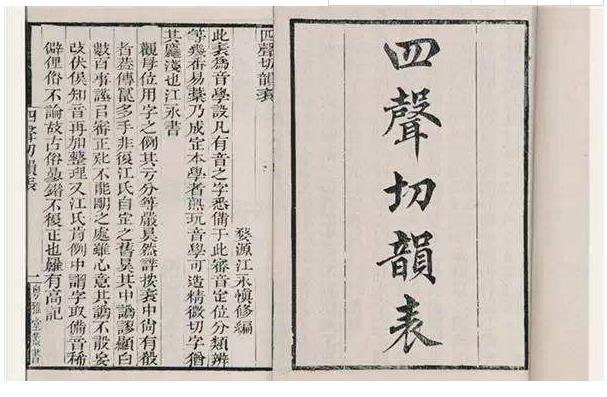 四聲切韻表
四聲切韻表
婺源江永慎修編
此表爲音學設凡有音之字悉備于此審音定位分類辨
等幾番易藁乃成定本學者熟玩音學可造精微切字猶
其麤淺也江永書
觀母位用字之例其亏分等嚴矣然詳按表中尚有殽
者葢傳寫多手非復江氏自定之舊矣其中譌謬顯白
數百事謹已審正不能朙之處雖心意其譌不敢妄
改伏俟知音再加整理又江氏例中謂字取備音稀
僻俚俗不論故古俗錯不復正也羅有高記
四聲切韻表
一
粵雅堂叢書